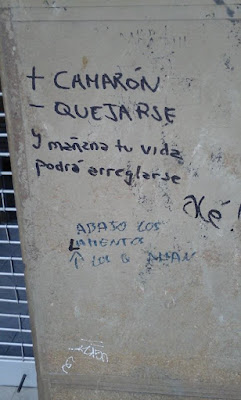 + CAMARÓN
- QUEJARSE
y mañana tu vida
podrá arreglarse
Xé!
ABAJO LOS
LAMENTOS